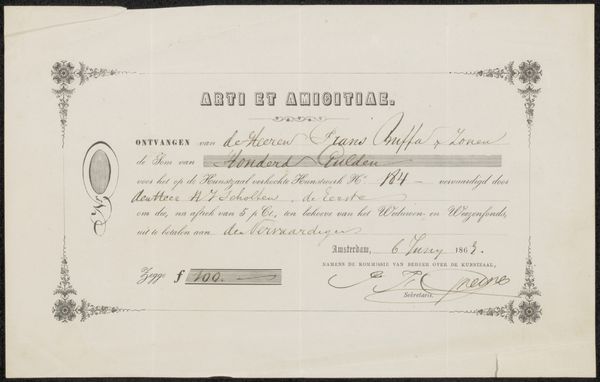 ARTI ET AMICITIAE.
ONTVANGEN van de Heeren Frans Buffa & Zonen
de Som van Honderd Gulden
voor het op de Kunstzaal verkochte Kunstwerk No. 184 vervaardigd door
den Heer H. J. Scholten, de Eerste
om die, na aftrek van 5 p Ct., ten behoeve van het Weduwen- en Weezenfonds,
uit te betalen aan den Vervaardiger
Amsterdam, 6 Juny 186
NAMENS DE KOMMISSIE VAN BEHEER OVER DE KUNSTZAAL,
Zegge f 100.-
Sekretaris.
No.